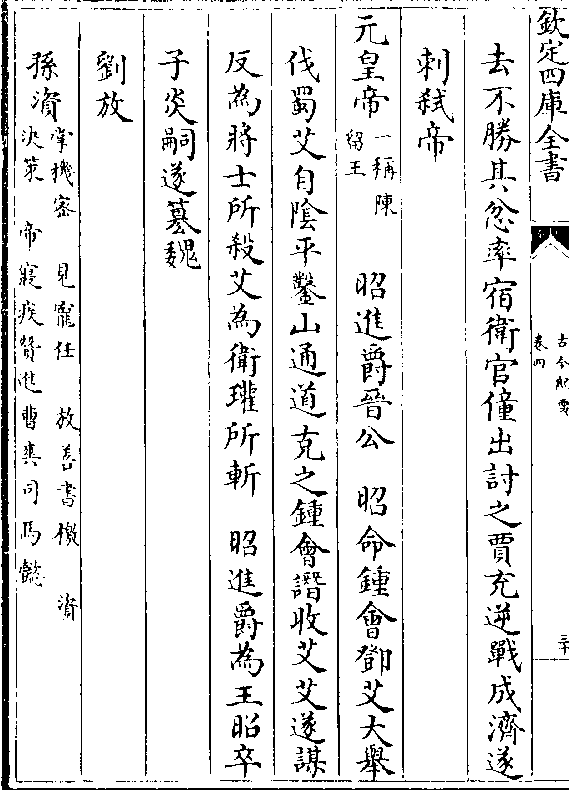 欽定四庫全書
古今紀要
卷四
三十
去不勝其忿率宿衛官僮出討之賈充逆戰成濟遂
刺弑帝
元皇帝一稱陳留王　昭進爵晉公　昭命鍾會鄧艾大舉
伐蜀艾自陰平鑿山通道克之鍾會譖收艾艾遂謀
反為將士所殺艾為衛瓘所斬　昭進爵為王昭卒
子炎嗣遂簒魏
劉放
孫資掌機密　見寵任　放善書檄　資
決策　帝寢疾贊進曹爽司馬懿